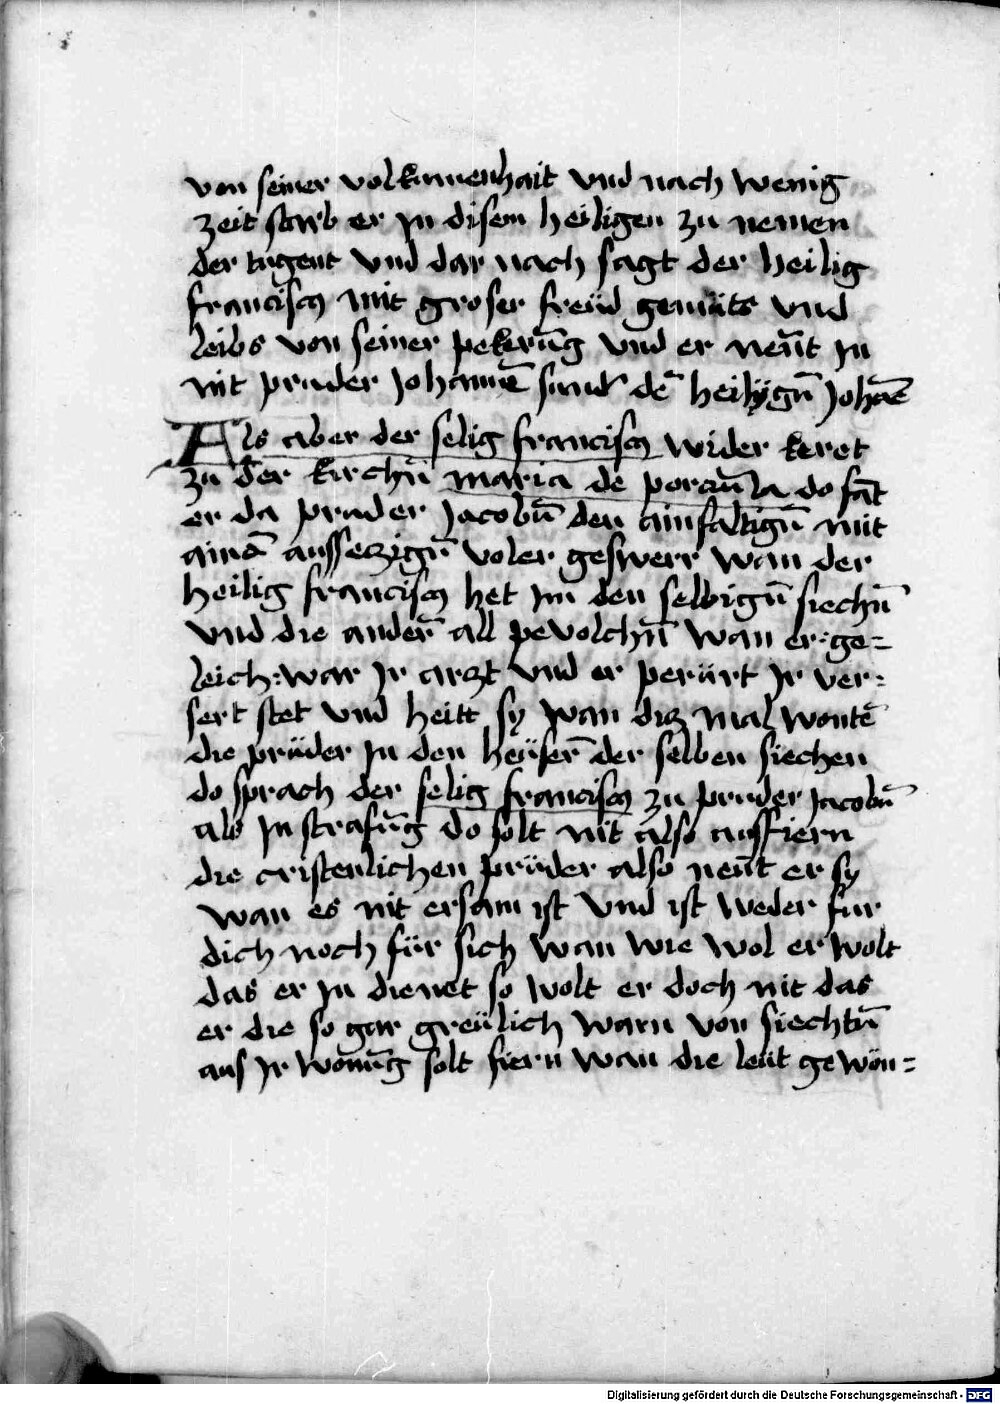 von seiner volkumenhait vnd nach wenig
zeit starb er jn disem heiligen zu nemen
der tugent vnd dar nach sagt der heilig
franciscꝯ mit groser freüd gemüts vnd
leibs von seiner pekerūg vnd er nen̄t jn
nit pruder johannē sund̄ dē heilygn̄ johānē
Als aber der selig franciscꝯ wider keret
zu der kirchn̄ maria de porciūla do fāt
er da pruder jacobū den ainfaltign̄ mit
ainē aussezign̄ voler geswerr wan der
heilig franciscꝯ het im den selbign̄ siechn̄
vnd die ander̄ all pevolchn̄ wan er: ge=
leich: war jr arzt vnd er perürt jr ver=
sert stet vnd heilt sy wan diz mal wontē
die prüder jn den heüser̄ der selben siechen
do sprach der selig franciscꝯ zu pruder jacobū
als jn strafūg do solt nit also ausfiern
die cristenlichen prüder also nen̄t er sy
wan es nit ersam ist vnd ist weder fur
dich noch für sich wan wie wol er wolt
das er jn dienet so wolt er doch nit das
er die so gar greülich warn von siechtū
aus jr wonūg solt fiern wan die leüt gewön=
Digitalisierung gefördert durch die Deutsche Forschungsgemeinschaft - DFG